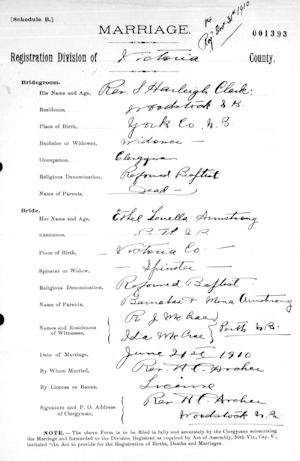 [Schedule B.]
MARRIAGE.
Reg Dec 31st 1910
001393
Registration Division of Victoria County.
Bridegroom.
His Name and Age, Rev. S Harleigh Clark.
Residence, Woodstock N.B.
Place of Birth, York Co. N.B.
Bachelor or Widower, Widower
Occupation, Clergyman
Religious Denomination, Reformed Baptist
Name of Parents, Dead
Bride.
Her Name and Age, Ethel Louella Armstrong
Residence,
Place of Birth, Victoria Co
Spinster or Widow, Spinster
Religious Denomination, Reformed Baptist
Name of Parents, Barnabas & Armstrong
Names and Residences of Witnesses, R. J McCrea
Ida McCrea Perth N.B.
Date of Marriage, June 21st 1910
By Whom Married, Rev. H C Archer
By License or Banns, License
Signature and P. O. Address of Clergyman, Rev H C Archer
Woodstock N.B.
NOTE.—The above Form is to be filled in fully and accurately by the Clergyman solemnizing
the Marriage and forwarded to the Division Registrar, as required by Act of Assembly, 50th Vic., Cap. V,
intituled "An Act to provide for the Registration of Births, Deaths and Marriages.